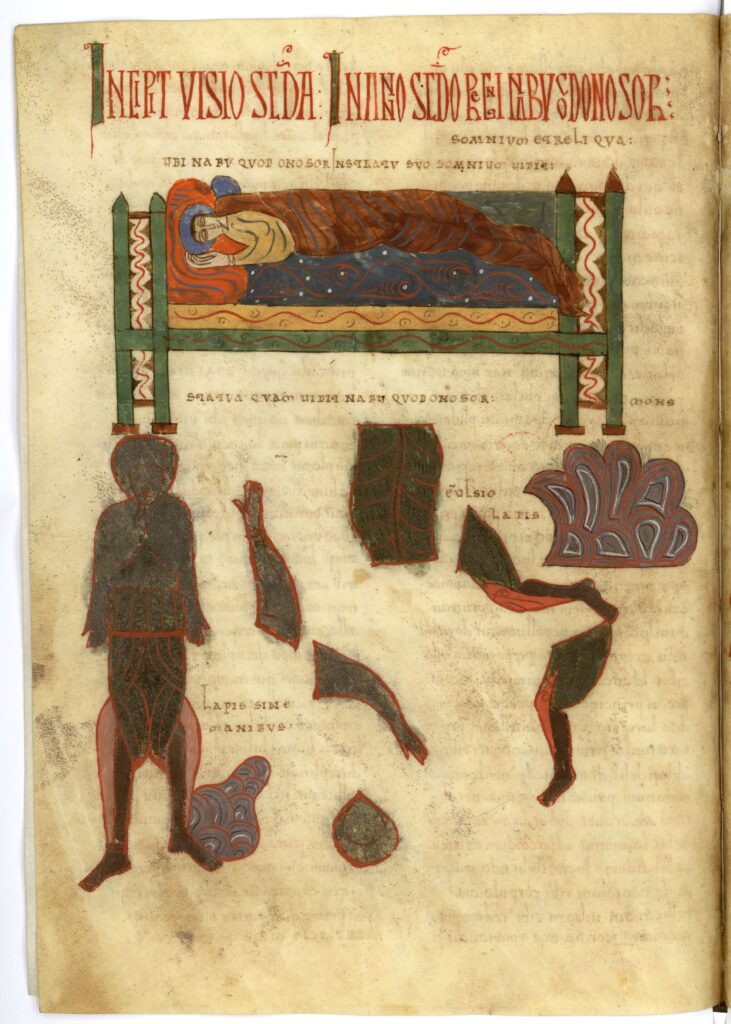 INCIPIT VISIO SECDA: IN ANNO SECDO REGNI NABUCODONOSOR:
SOMNIUM ET RELIQUA:
UBI NABUQUODONOSOR IN STRATU SUO SOMNIUM UIDIT:
STATUA QUAM UIDIT NABUQUODONOSOR:
MONS
LAPIS
LAPIS SINE
MANIBUS·